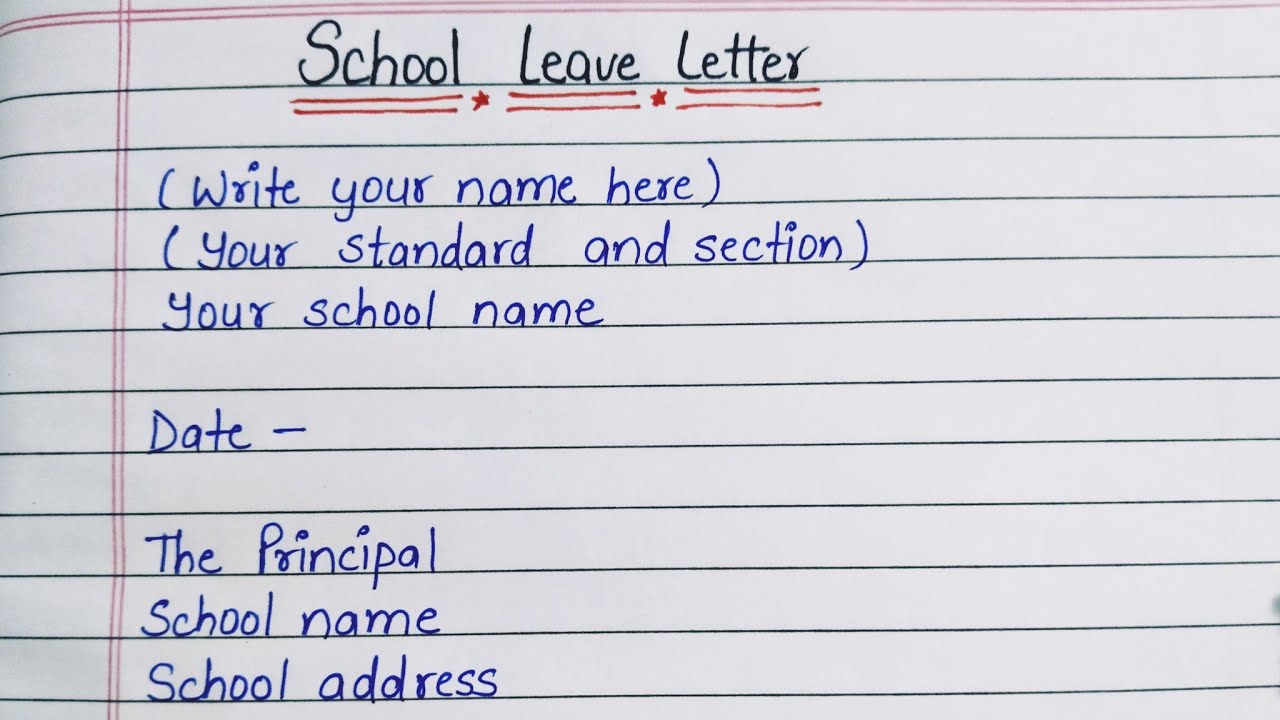 School Leave Letter
(Write your name here)
(Your standard and section)
Your school name
Date -
The Principal
School name
School address